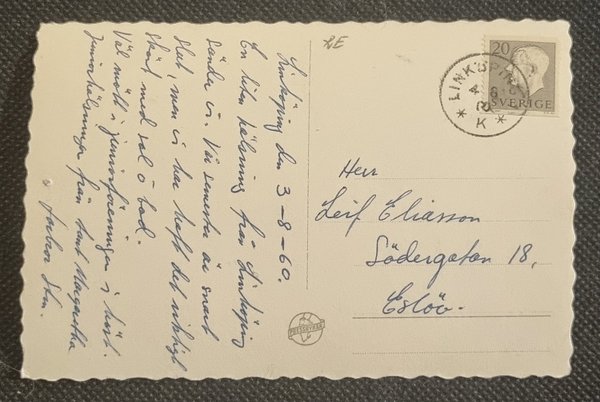 Linköping den 3-8-60.
En liten hälsning från Linköping
sänder vi. Vår semester är snart
slut, men vi har haft det riktigt
skönt med sol o bad.
Väl mött i juniorföreningen i höst.
Juniorhälsningar från tant Margaretha
farbror Sten.
RE
20
SVERIGE
LINKÖPING
4 8
K
Herr
Leif Eliasson
Södergatan 18,
Eslöv.
PRESSBYRÅN